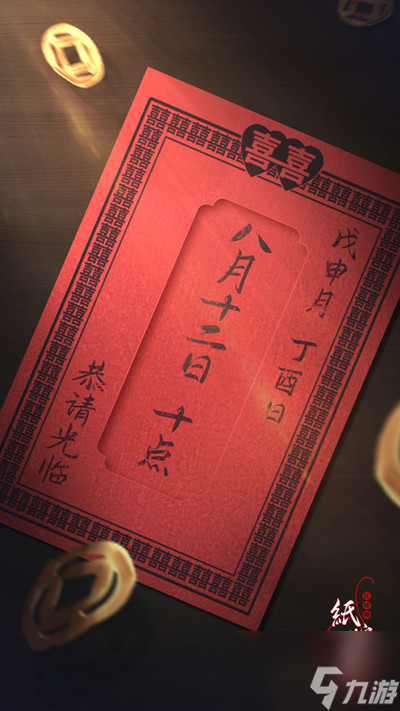 囍
戊申月 丁酉日
八月十二日 十点
恭请光临
紙
九游